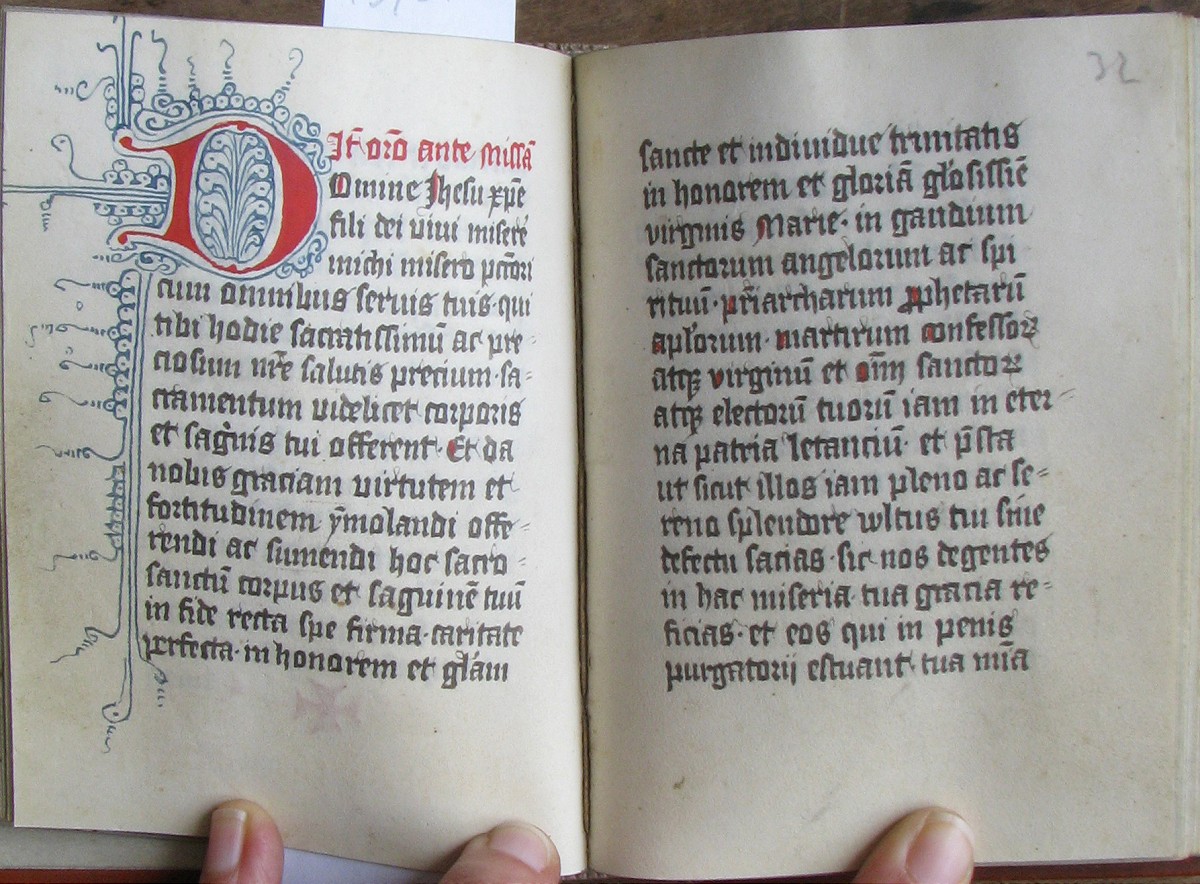 Itē orō ante missā
Domine Jhesu xpē
fili dei vivi miserē
michi misero pctōri
cum omnibus servis tuis · qui
tibi hodie sacratissimū ac pre=
ciosum nrē salutis precium · sa=
cramentum videlicet corporis
et sagīnis tui offerent · Et da
nobis graciam virtutem et
fortitudinem ymolandi offe=
rendi ac sumendi hoc sacro=
sanctū corpus et saguinē tuū
in fide recta spe firma · caritate
perfecta · in honorem et glām
32
sancte et individue trinitatis
in honorem et gloriā glosissīē
virginis Marie · in gaudium
sanctorum angelorum ac spi
rituū · priarcharum prophetarū
aplorum · martirum confessoꝝ
atqꝫ virginū et omī sanctoꝝ
atqꝫ electorū tuorū iam in eter=
na patria letanciū · et psta
ut sicut illos iam pleno ac se=
reno splendore wltus tui sine
defectu sacias · sic nos degentes
in hac miseria tua gracia re=
ficias · et eos qui in penis
purgatorii estuant · tua mīa